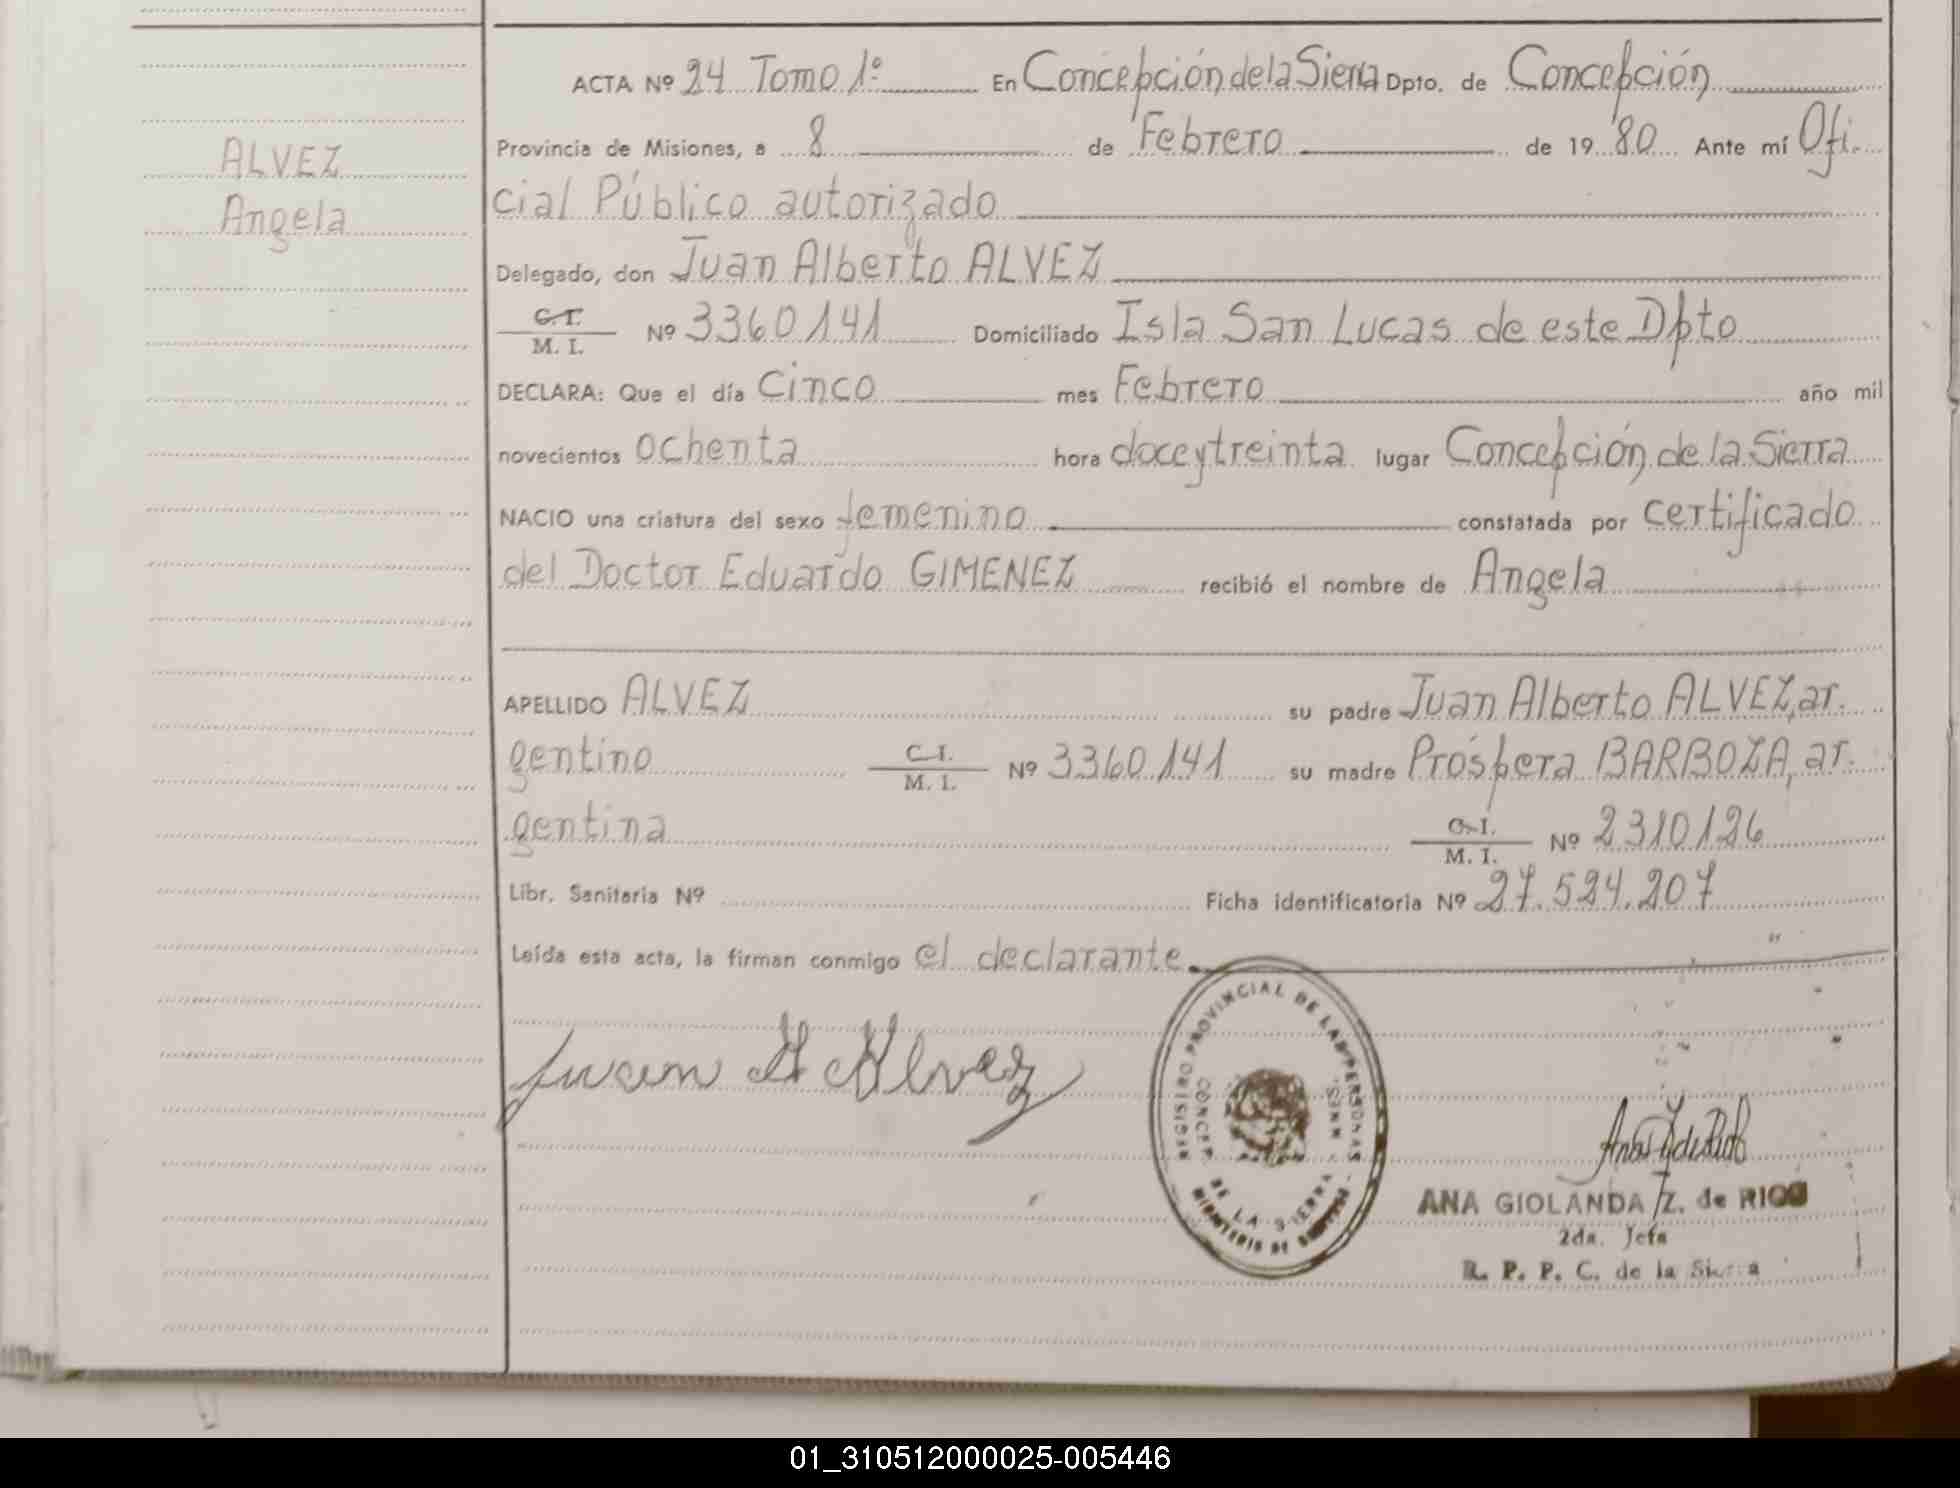 ALVEZ
Angela
ACTA Nº 24 Tomo 1º En Concepción de la Sierra Dpto. de Concepción
Provincia de Misiones, a 8 de Febrero de 1980 Ante mí Ofi-
cial Público autorizado
Delegado, don Juan Alberto ALVEZ
C.I. M. I. Nº 3360141 Domiciliado Isla San Lucas de este Dpto
DECLARA: Que el día Cinco mes Febrero año mil
novecientos ochenta hora doce y treinta lugar Concepción de la Sierra
NACIO una criatura del sexo femenino constatada por certificado
del Doctor Eduardo GIMENEZ recibió el nombre de Angela
APELLIDO ALVEZ su padre Juan Alberto ALVEZ, ar-
gentino C.I. M. I. Nº 3360141 su madre Próspera BARBOZA, ar-
gentina C.I. M. I. Nº 2310126
Libr. Sanitaria Nº Ficha identificatoria Nº 27.524.207
Leída esta acta, la firman conmigo el declarante.
Juan A Alvez
REGISTRO PROVINCIAL DE LAS PERSONAS
CONCEP. DE LA SIERRA
MINISTERIO DE
ANA GIOLANDA Z. de RIOS
2da. Jefa
R. P. P. C. de la Sierra
01_310512000025-005446